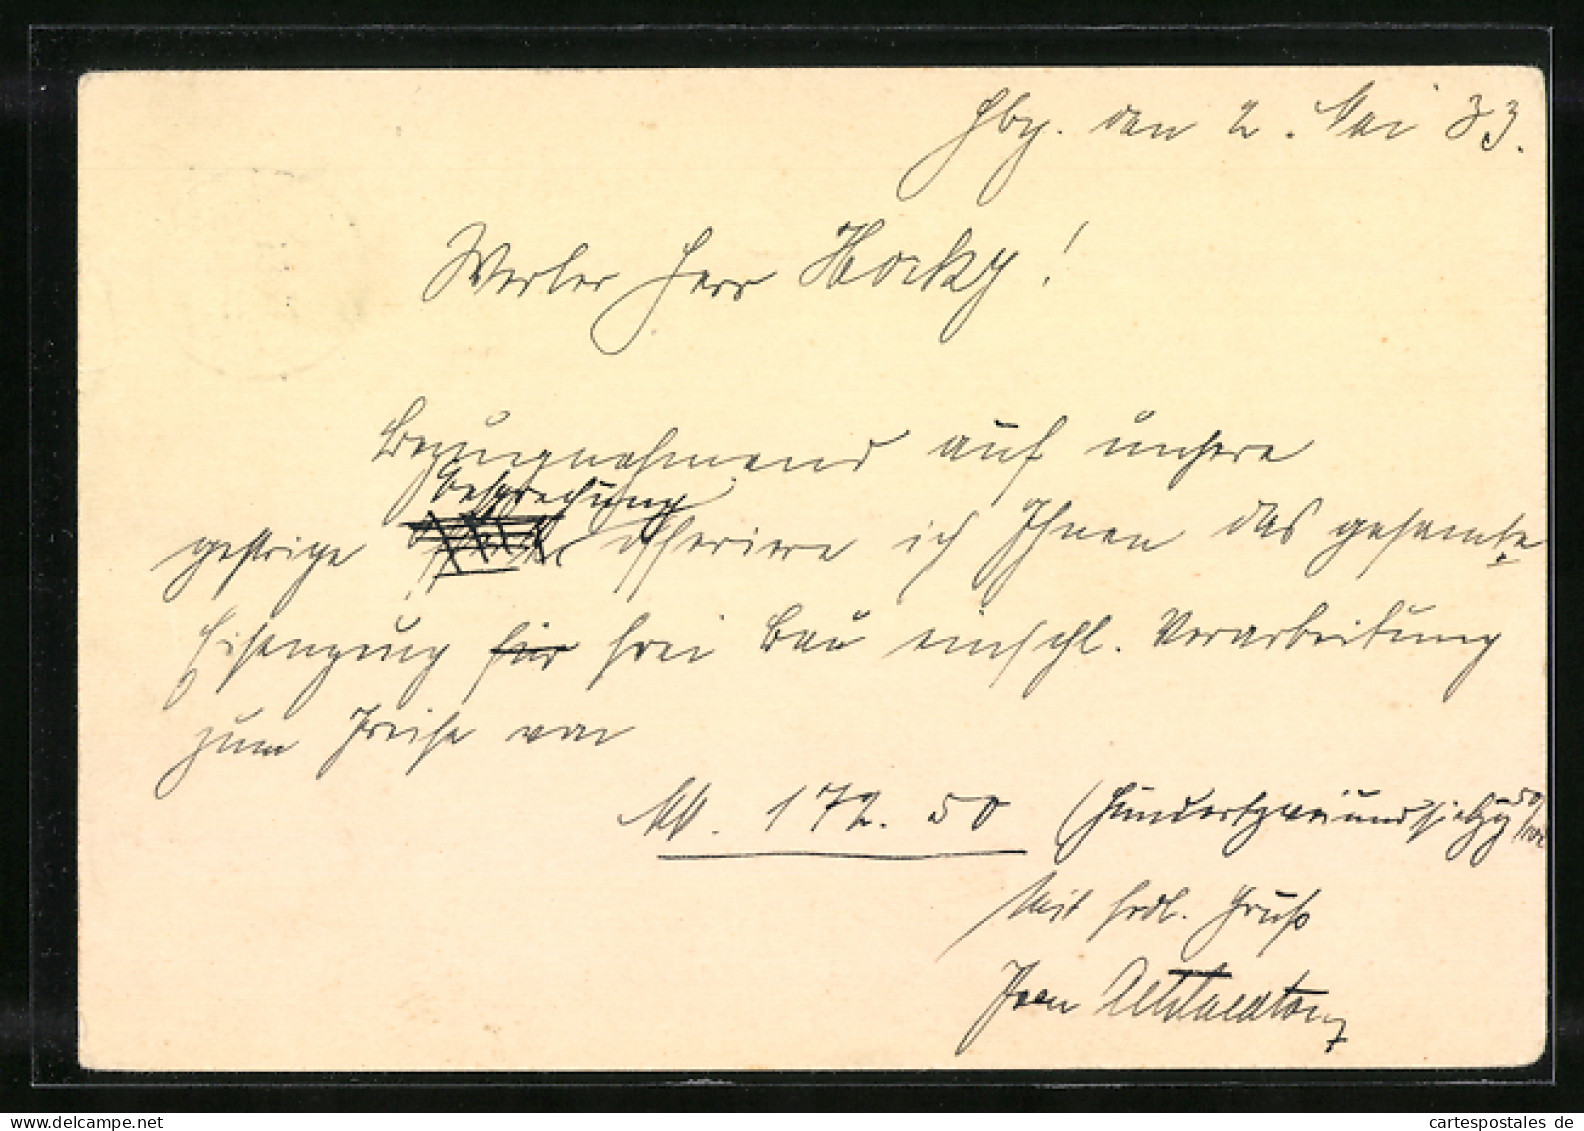 Hbg. den 2. Mai 33.
Werter Herr Hocky!
Bezugnehmend auf unsere
Besprechung
gestrige offeriere ich Ihnen das gesamte
Eisenzeug für frei Bau einschl. Verarbeitung
zum Preise von
Mk. 172.50 (Hundertzweiundsiebzig 50/100
Mit frdl. Gruß
cartespostales de